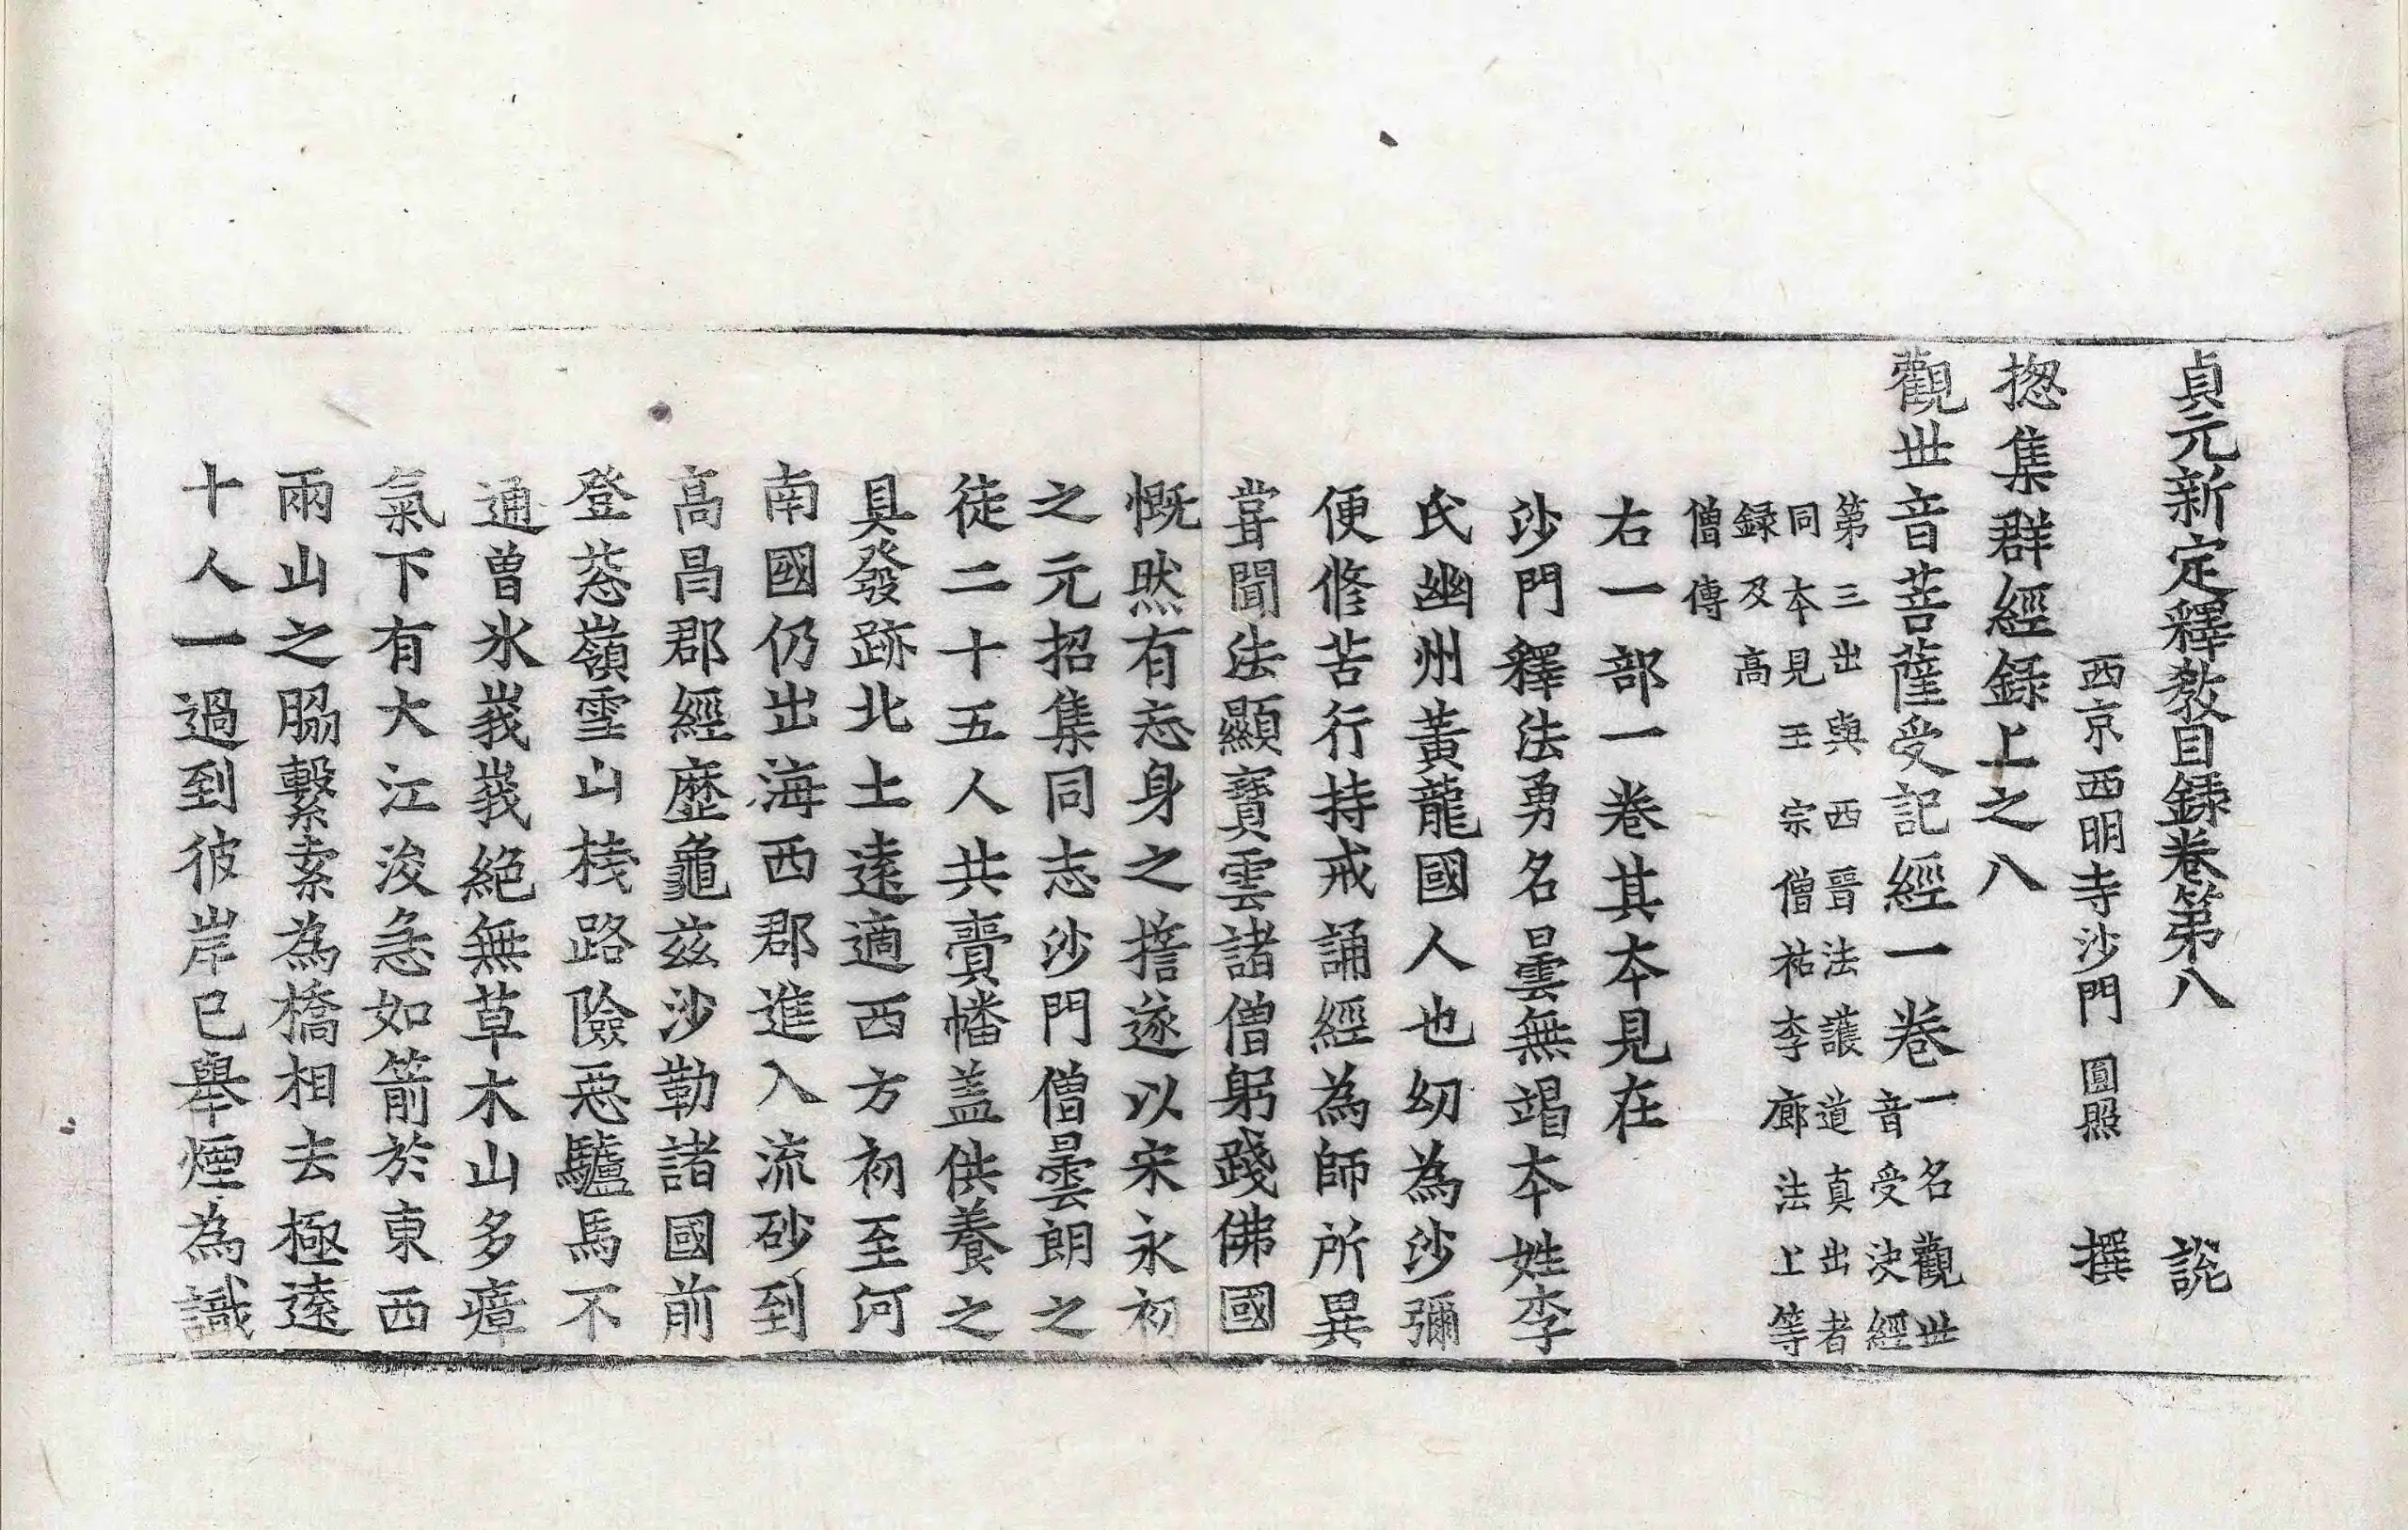 貞元新定釋教目録卷第八 說
西京西明寺沙門 圓照 撰
揔集群經録上之八
觀世音菩薩受記經一卷一名觀世音受決經
第三出與西晉法護道真出者
同本見王宗僧祐李廊法上等
録及高
僧傳
右一部一卷其本見在
沙門釋法勇名曇無竭本姓李
氏幽州黃龍國人也幼為沙彌
便修苦行持戒誦經為師所異
甞聞法顯寶雲諸僧躬踐佛國
慨然有忘身之擔遂以宋永初
之元招集同志沙門僧曇朗之
徒二十五人共賷幡盖供養之
具發跡北土遠適西方初至河
南國仍出海西郡進入流砂到
高昌郡經歷龜茲沙勒諸國前
登葱嶺雪山棧路險惡驢馬不
通曾氷峩峩絕無草木山多瘴
氣下有大江浚急如箭於東西
兩山之脇繫索為橋相去極遠
十人一過到彼岸已舉煙為識